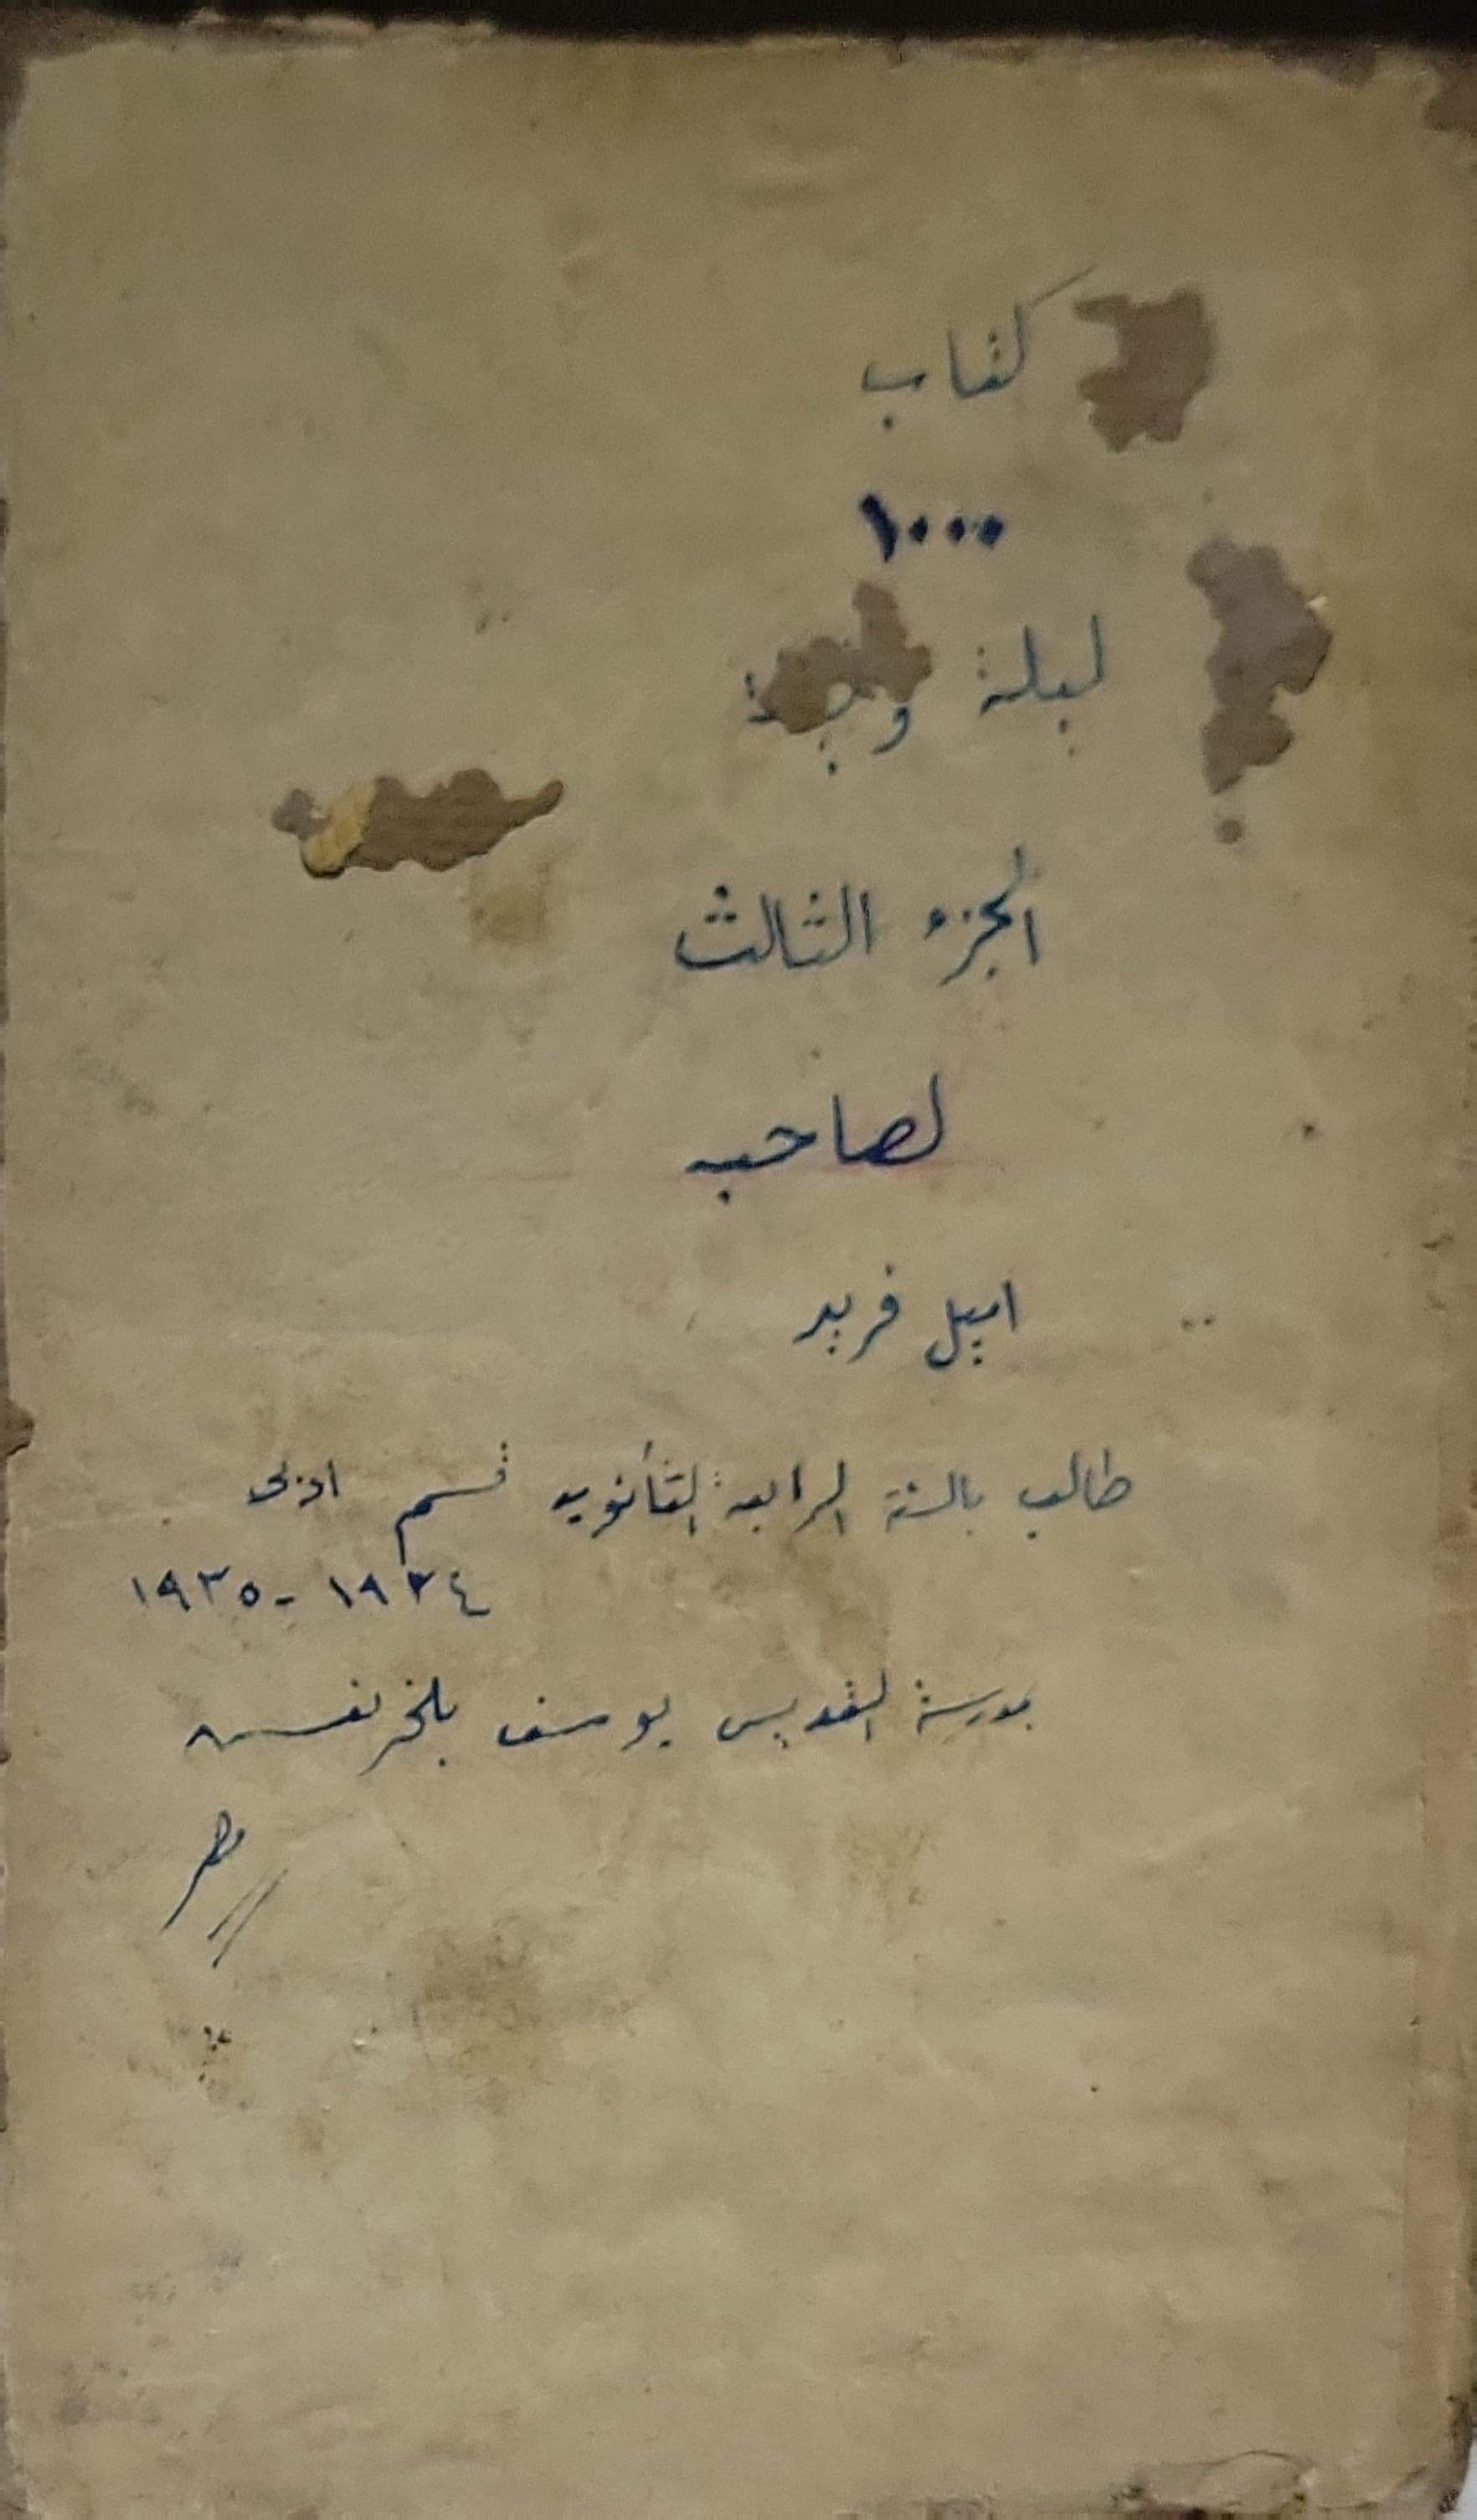 كتاب
١٠٠٠
ليلة
الجزء الثالث
لصاحبه
اميل فريد
طالب بالسنة الرابعة الثانوية قسم ادبى
١٩٣٤ - ١٩٣٥
بمدرسة القديس يوسف بالخرنفش
مصر